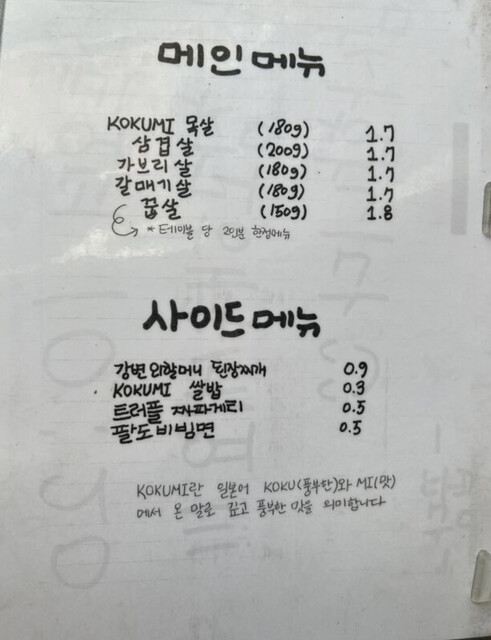 메인 메뉴
KOKUMI 목살 (180g) 1.7
삼겹살 (200g) 1.7
가브리살 (180g) 1.7
갈매기살 (180g) 1.7
꿉살 (150g) 1.8
* 테이블 당 2인분 한정메뉴
사이드 메뉴
강변 외할머니 된장찌개 0.9
KOKUMI 쌀밥 0.3
트러플 짜파게티 0.5
팔도비빔면 0.5
KOKUMI란 일본어 KOKU(풍부한)와 MI(맛)
에서 온 말로 깊고 풍부한 맛을 의미합니다